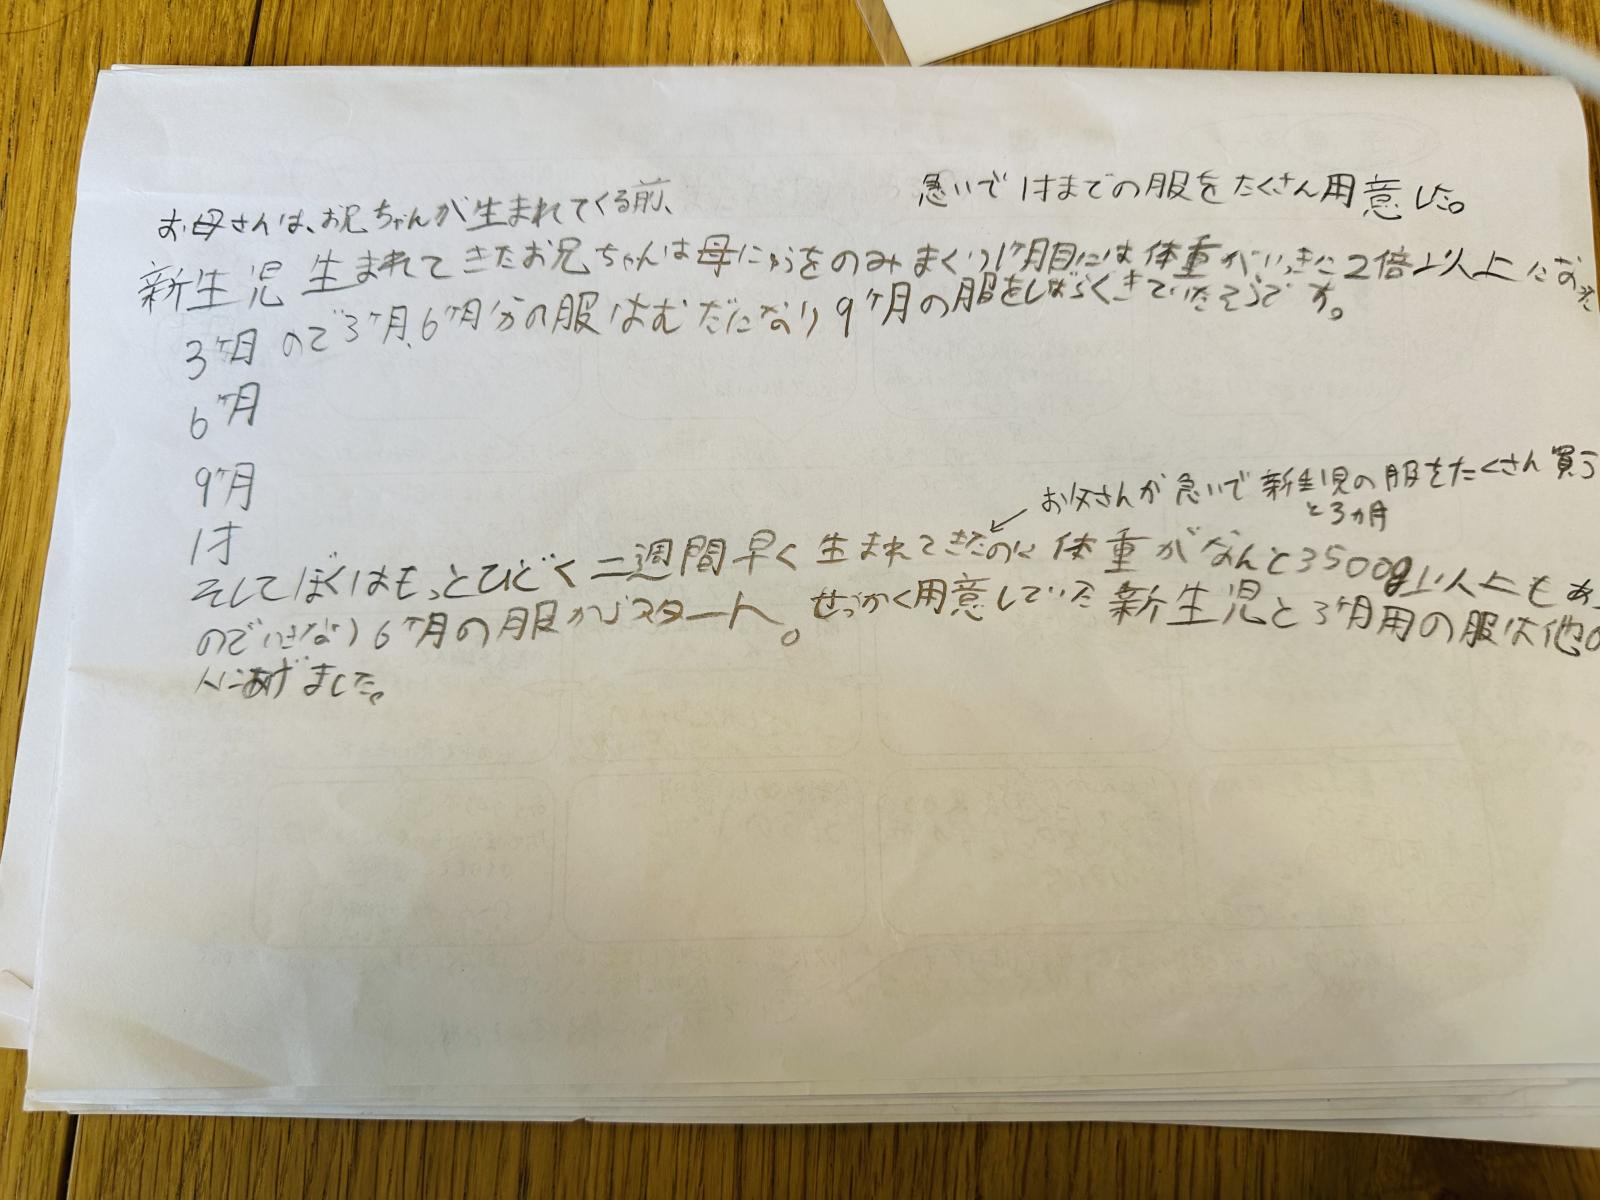 急いで1才までの服をたくさん用意した。
お母さんは、お兄ちゃんが生まれてくる前、
新生児 生まれてきたお兄ちゃんは母にゅうをのみまくり1ヶ月目には体重がいっきに2倍以上に
3ヶ月 ので3ヶ月、6ヶ月分の服はむだになり9ヶ月の服をしばらくきていたそうです。
6ヶ月
9ヶ月
1才
お父さんが急いで新生児の服をたくさん買う
と3カ月
そしてぼくはもっとひどく二週間早く生まれてきたのに体重がなんと3500g以上もあ
のでいきなり6ヶ月の服からスタート。せっかく用意していた新生児と3ヶ月用の服は他の
人にあげました。